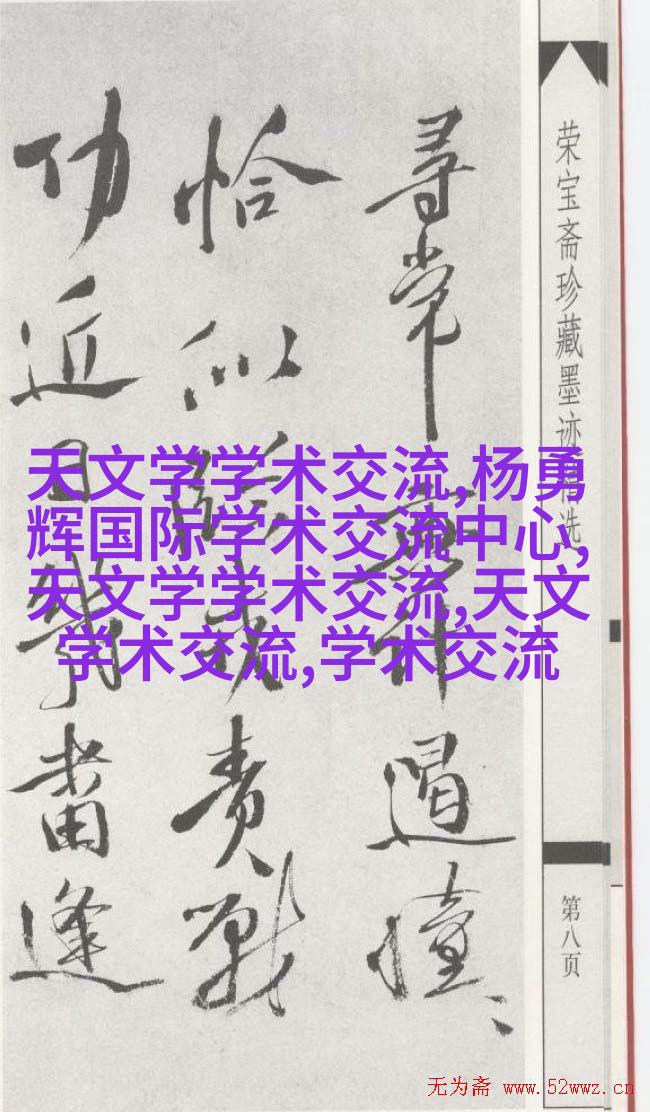 天文学学术交流,杨勇
辉国际学术交流中心,
天文学学术交流,天文
学术交流,学术交流
荣宝斋珍藏墨迹精选
第八页
尋常無計遏憧、
恰似臨戎責戰
功近日番逢
无为斋 www.52wwz.cn